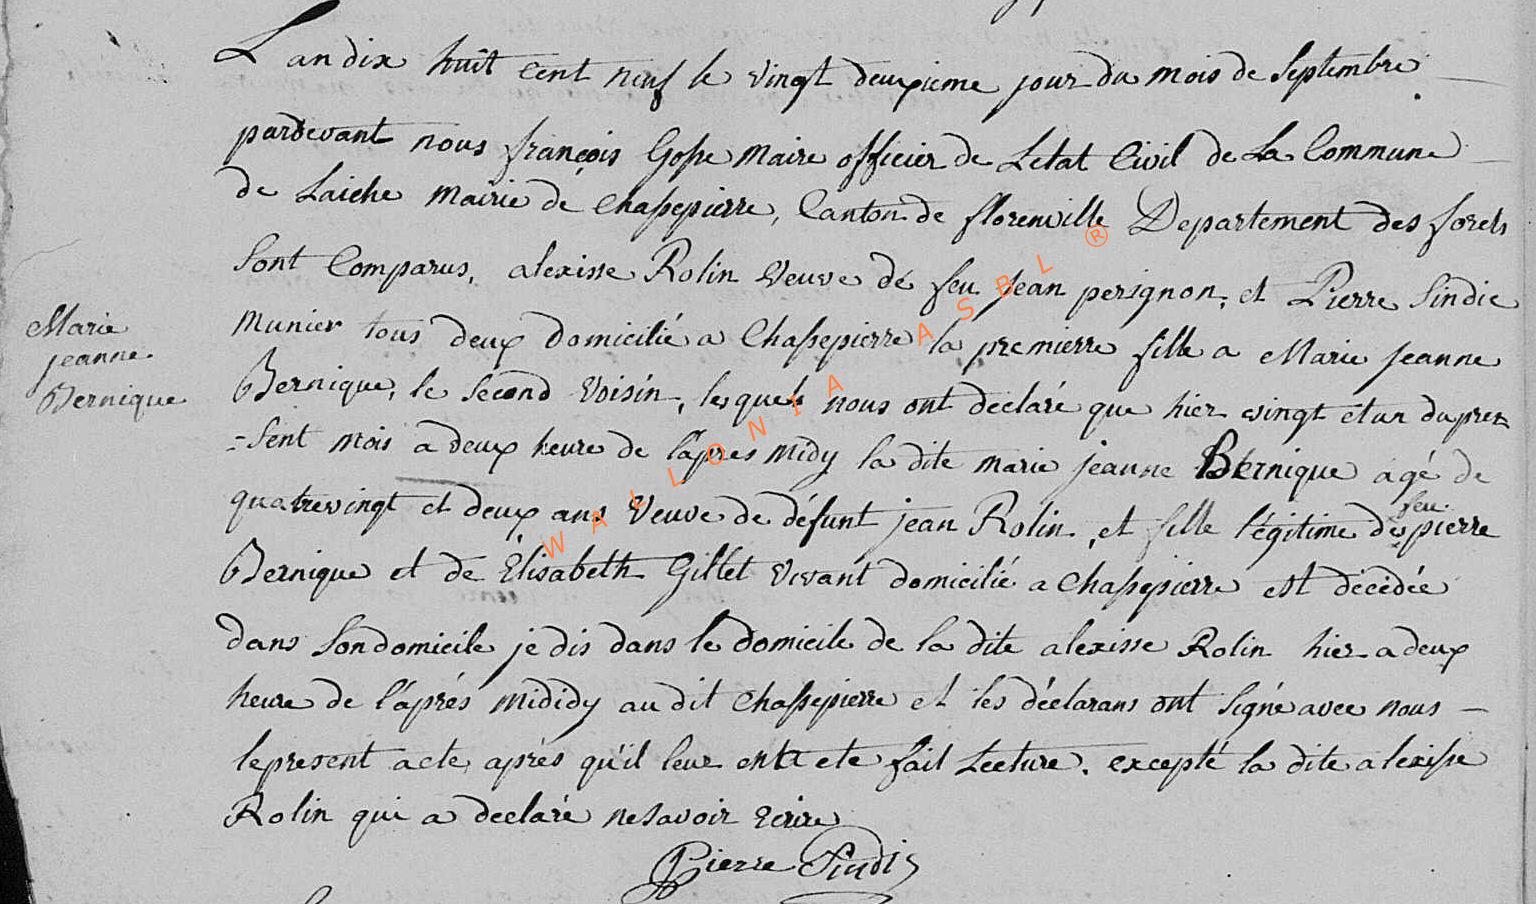 L an dix huit cent neuf le vingt deuxieme jour du mois de Septembre
pardevant nous françois Gosse maire officier de Letat Civil de La Commune
de Laiche mairie de Chassepierre, Canton de florenville Departement des forets
Sont Comparus, alexisse Rolin Veuve de feu Jean perignon, et Pierre Sindic
Munier tous deux domicilié a Chassepierre la premierre fille a Marie Jeanne
Bernique, le Second Voisin, lesquels nous ont declaré que hier vingt et un du pre
=Sent mois a deux heure de l'apres midy la dite marie jeanne Bernique agé de
quatrevingt et deux ans Veuve de défunt jean Rolin, et fille légitime de feu pierre
Bernique et de Elisabeth Gillet vivant domicilié a Chassepierre est décédée
dans Son domicile je dis dans le domicile de la dite alexisse Rolin hier a deux
heure de l'aprés mididy au dit Chassepierre et les déclarans ont Signé avec nous
le present acte après qu'il leur enta ete fait Lecture. excepté la dite alexisse
Rolin qui a declaré ne Savoir Ecrire
Pierre Sindic
Marie
jeanne
Bernique
WALLONIA ASBL ®